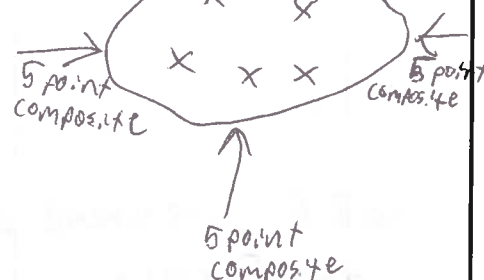 5 point
composite
5 point
composite
5 point
composite